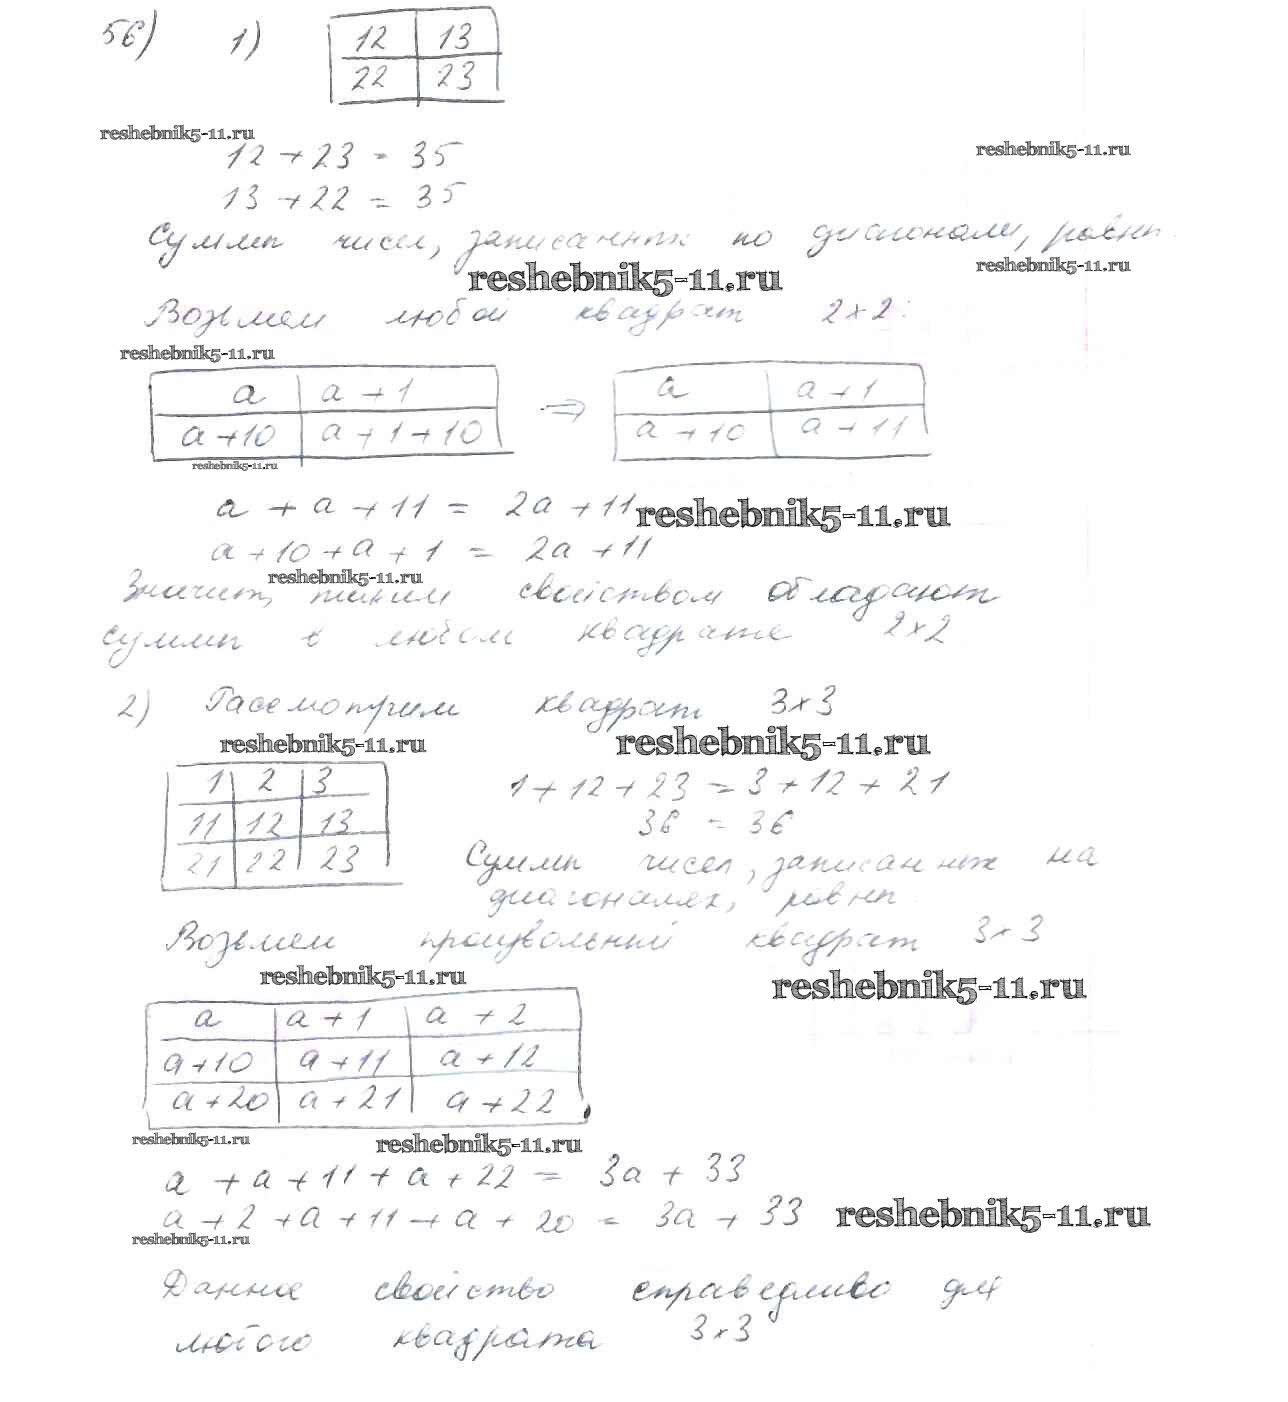 56) 1) 12 13
22 23
reshebnik5-11.ru
12 + 23 = 35
reshebnik5-11.ru
13 + 22 = 35
Суммы чисел, записанных по диагонали, равны.
reshebnik5-11.ru
reshebnik5-11.ru
Возьмем любой квадрат 2×2:
reshebnik5-11.ru
a a + 1 ⇒ a a + 1
a + 10 a + 1 + 10 a + 10 a + 11
reshebnik5-11.ru
a + a + 11 = 2a + 11
reshebnik5-11.ru
a + 10 + a + 1 = 2a + 11
reshebnik5-11.ru
Значит, таким свойством обладают
суммы в любом квадрате 2×2
2) Рассмотрим квадрат 3×3
reshebnik5-11.ru
reshebnik5-11.ru
1 2 3
11 12 13
21 22 23
1 + 12 + 23 = 3 + 12 + 21
36 = 36
Суммы чисел, записанных на
диагоналях, равны.
Возьмем произвольный квадрат 3×3
reshebnik5-11.ru
reshebnik5-11.ru
a a + 1 a + 2
a + 10 a + 11 a + 12
a + 20 a + 21 a + 22
reshebnik5-11.ru
reshebnik5-11.ru
a + a + 11 + a + 22 = 3a + 33
a + 2 + a + 11 + a + 20 = 3a + 33
reshebnik5-11.ru
reshebnik5-11.ru
Данное свойство справедливо для
любого квадрата 3×3